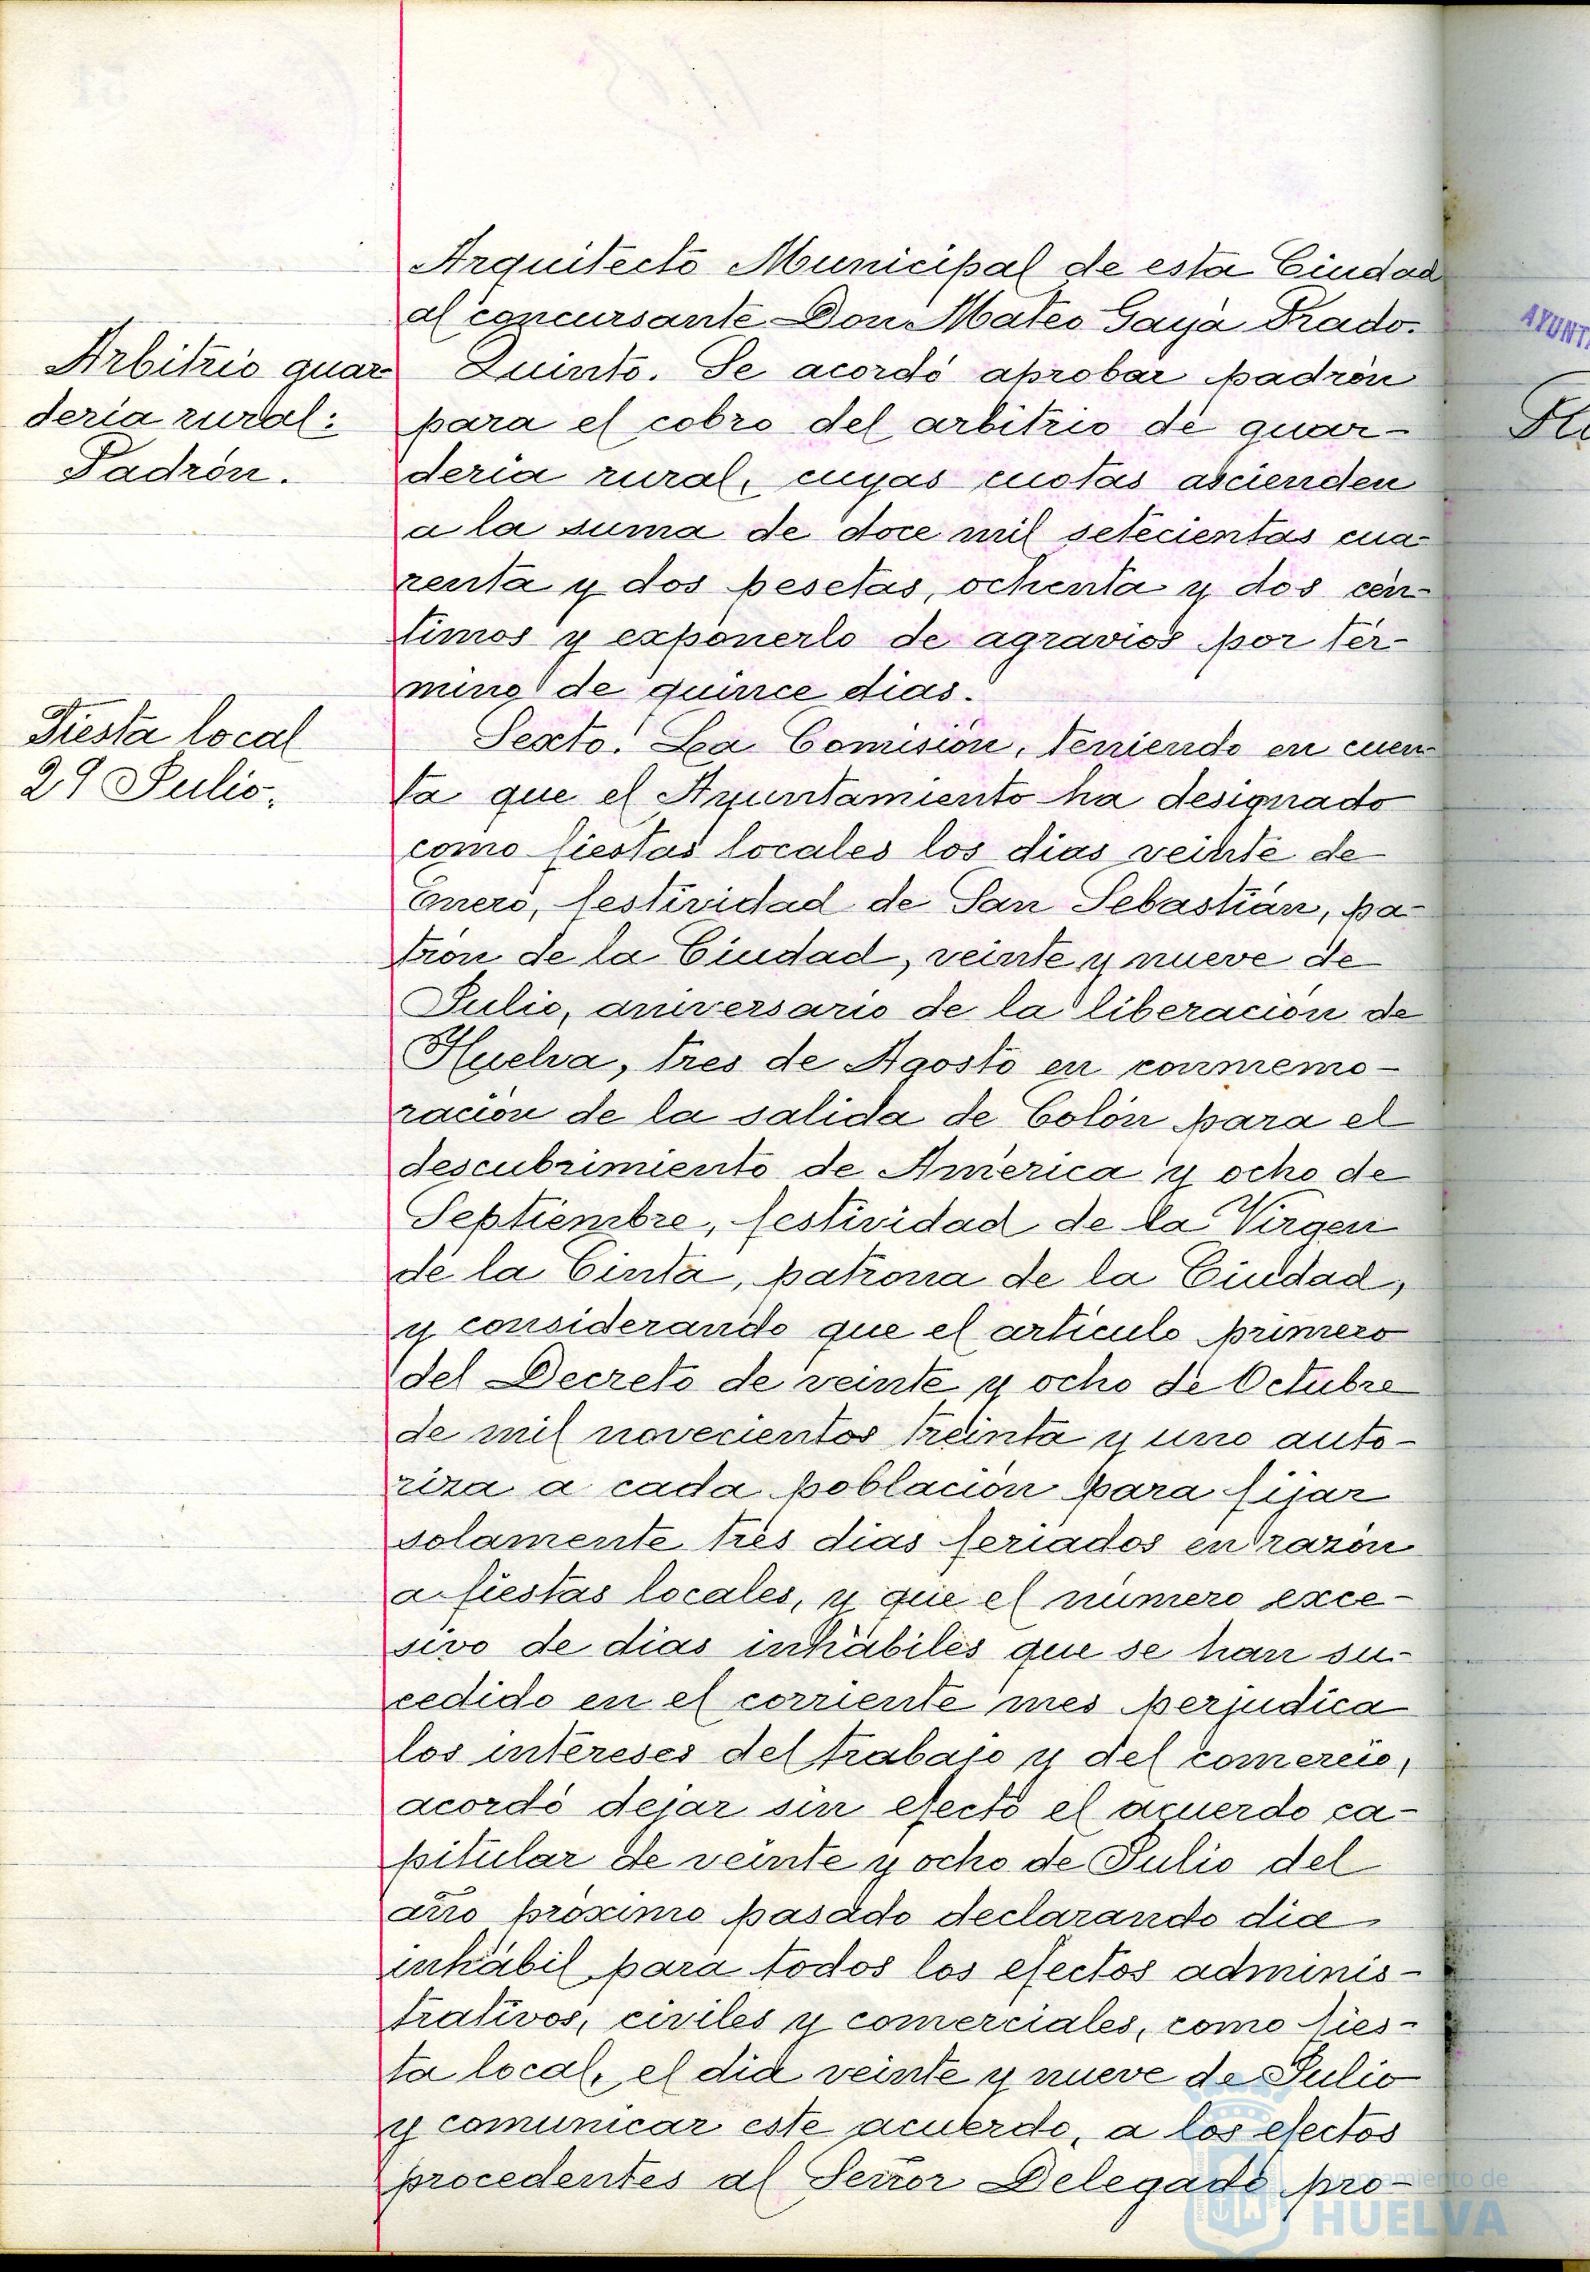 Arquitecto Municipal de esta Ciudad
al concursante Don Mateo Gaya Prado.
Arbitrio guar
deria rural:
Padrón.
Quinto. Se acordó aprobar padrón
para el cobro del arbitrio de guar-
deria rural, cuyas cuotas ascienden
a la suma de doce mil setecientas cua-
renta y dos pesetas, ochenta y dos cén-
timos y exponerlo de agravios por tér-
mino de quince dias.
Fiesta local
29 Julio.
Sexto. La Comisión, teniendo en cuen-
ta que el Ayuntamiento ha designado
como fiestas locales los dias veinte de
Enero, festividad de San Sebastián, pa-
trón de la Ciudad, veinte y nueve de
Julio, aniversario de la liberación de
Huelva, tres de Agosto en conmemo-
ración de la salida de Colón para el
descubrimiento de América y ocho de
Septiembre, festividad de la Virgen
de la Cinta, patrona de la Ciudad,
y considerando que el articulo primero
del Decreto de veinte y ocho de Octubre
de mil novecientos treinta y uno auto-
riza a cada población para fijar
solamente tres dias feriados en razón
a fiestas locales, y que el número exce-
sivo de dias inhábiles que se han su-
cedido en el corriente mes perjudica
los intereses del trabajo y del comercio,
acordó dejar sin efecto el acuerdo ca-
pitular de veinte y ocho de Julio del
año próximo pasado declarando dia
inhábil para todos los efectos adminis-
trativos, civiles y comerciales, como fies-
ta local, el dia veinte y nueve de Julio
y comunicar este acuerdo, a los efectos
procedentes al Señor Delegado pro-
AYUNTA
Ayuntamiento de
HUELVA